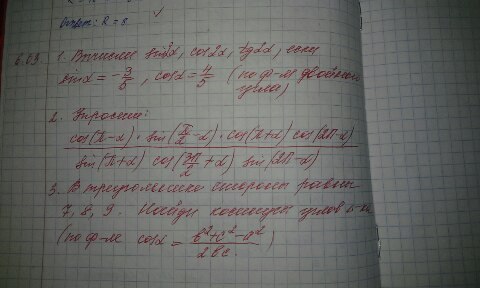 Ответ: R = 8.
6.09. 1. Вычисли sin2α, cos2α, tg2α, если
sinα = -3/5, cosα = 4/5 (по ф-ле двойного
угла)
2. Упрости:
cos(π-α)·sin(π/2-α)·cos(π+α) cos(2π-α)
sin(π+α) cos(3π/2+α) sin(2π-α)
3. В треугольнике стороны равны
7, 8, 9. Найди косинусы углов
(по ф-ле cosα = b²+c²-a² / 2bc.)